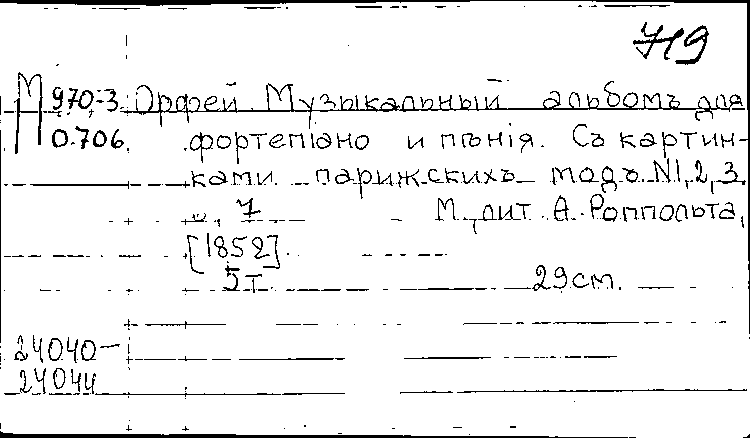 719
М 970-3 Орфей. Музыкальный альбомъ для
0.706. фортепіано и пѣнія. Съ картин-
ками парижскихъ модъ. N1, 2, 3.
и, 7 М., лит. А. Роппольта,
[1852].
5т. 29см.
24040-
24044